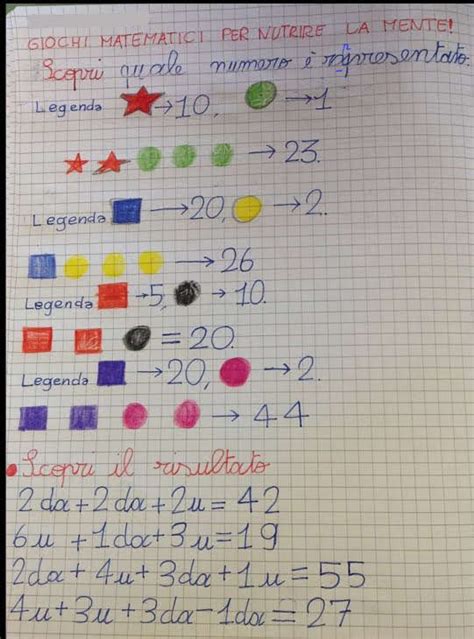 GIOCHI MATEMATICI PER NUTRIRE LA MENTE!
Scopri quale numero è rappresentato.
Legenda →10, →1
→ 23.
Legenda →20, →2.
→26
Legenda →5, →10.
=20.
Legenda →20, →2.
→ 44
Scopri il risultato
2da+2da+2u=42
6u+1da+3u=19
2da+4u+3da+1u=55
4u+3u+3da-1da=27